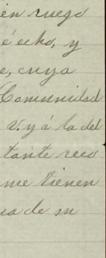 en ruego
é esto, y
e, cuya
Comunidad
a, y á la del
tante reco
me tienen
ua de su